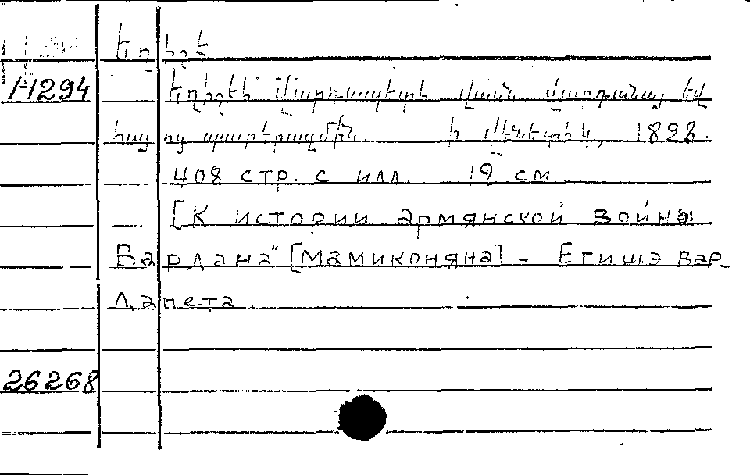 Եղիշէ
1-1294 Եղիշէի վարդապետի վասն վարդանայ եվ
հայոց պատերազմին. Ի վենետիկ, 1828.
408 стр. с илл. 19 см
[К истории армянской война
Вардана" [Мамиконяна] - Егишэ вар
дапета
26268